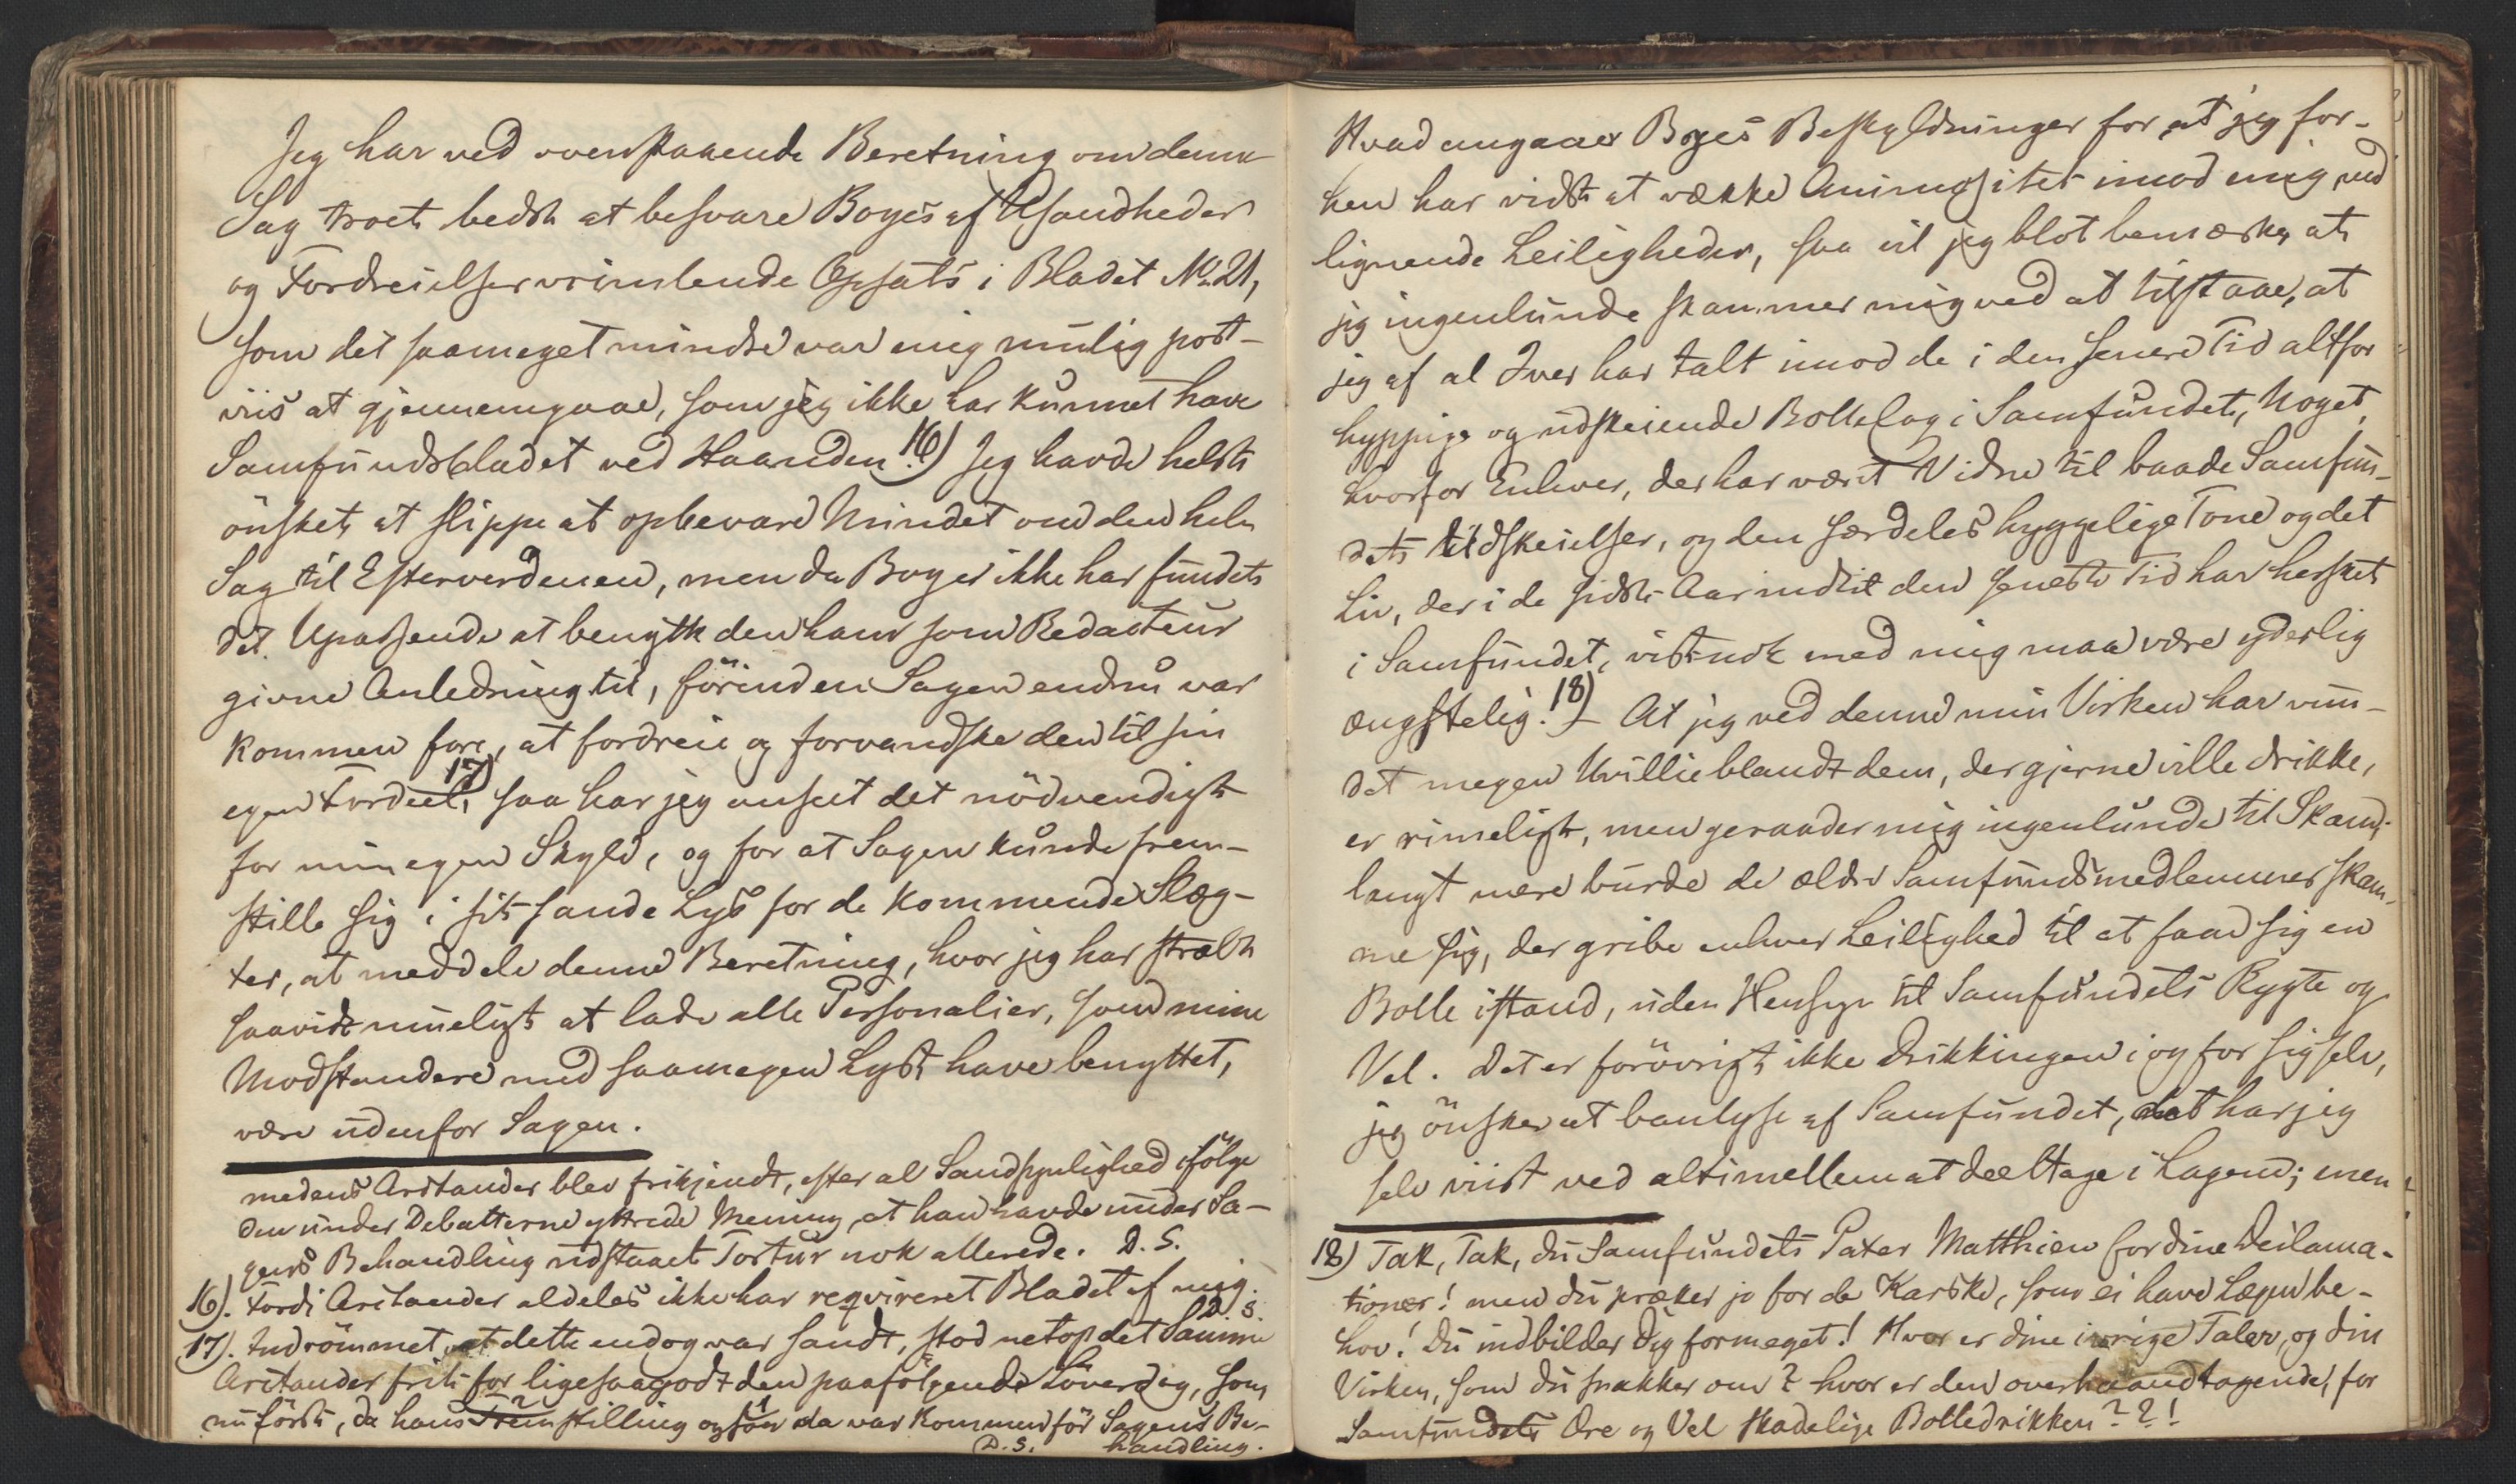 Jeg har ved ovenstaaende Beretning om denne
Sag troet bedst at besvare Boyes af Usandheder
og Fordreielser vrimlende Opsats i Bladet No. 21,
som det saameget mindre var mig mulig post-
viis at gjennemgaae, som jeg ikke har kunnet have
Samfundsbladet ved Haanden. 16) Jeg havde helst
ønsket at slippe at opbevare Mindet om den hele
Sag til Efterverdenen, men da Boye ikke har fundet
det Upassende at benytte den ham som Redacteur
givne Anledning til, förinden Sagen endnu var
kommen fore, at fordreie og forvandske den til sin
egen Fordeel, 17) saa har jeg anseet det nödvendigt
for min egen Skyld, og for at Sagen kunde frem-
stille sig i sit sande Lys for de kommende Slæg-
ter, at meddele denne Beretning, hvor jeg har stræbt
saavidt mueligt at lade alle Personalier, som mine
Modstandere med saamegen Lyst have benyttet,
være udenfor Sagen.
medens Aristander blev frikjendt, efter al Sandsynlighed ifölge
den under Debatterne yttrede Mening, at han havde under Sa-
gens Behandling udstaaet Tortur nok allerede. D. S.
16). Fordi Aristander aldeles ikke har reqvireret Bladet af mig.
D. S.
17). Indrömmet at dette endog var sandt, stod netop det Samme
Aristander frit for ligesaagodt den paafölgende Löverdag, som
nu först, da hans Fremstilling ogsaa da var kommen för Sagens Be-
D. S. handling.
Hvad angaaer Boyes Beskyldninger for at jeg for-
hen har vidst at vække Animositet imod mig ved
lignende Leiligheder, saa vil jeg blot bemærke, at
jeg ingenlunde skammer mig ved at tilstaae, at
jeg af al Iver har talt imod de i den senere Tid altfor
hyppige og udskeiende Bollelag i Samfundet, Noget,
hvorfor Enhver, der har været Vidne til baade Samfun-
dets Udskeielser, og den særdeles hyggelige Tone og det
Liv, der i de sidste Aar indtil den seneste Tid har hersket
i Samfundet, vistnok med mig maa være yderlig
ængstelig. 18) – At jeg ved denne min Virken har vun-
det megen Uvillie blandt dem, der gjerne ville drikke,
er rimeligt, men geraader mig ingenlunde til Skam;
langt mere burde de ældre Samfundsmedlemmer skam-
me sig, der gribe enhver Leilighed til at faae sig en
Bolle istand, uden Hensyn til Samfundets Rygte og
Vel. Det er forövrigt ikke Drikkingen i og for sig selv,
jeg önsker at banlyse af Samfundet, det har jeg
selv viist ved altimellem at deeltage i Lagene; men
18) Tak, Tak, du Samfundets Pater Matthieu for dine Deilama-
tioner! men du præker jo for de Karske, som ei have Lægen be-
hov! Du indbilder Dig formeget! Hvor er dine ivrige Taler, og din
Virken, som du snakker om? hvor er den overhaandtagende, for
Samfundets Ære og Vel skadelige Bolledrikken??!